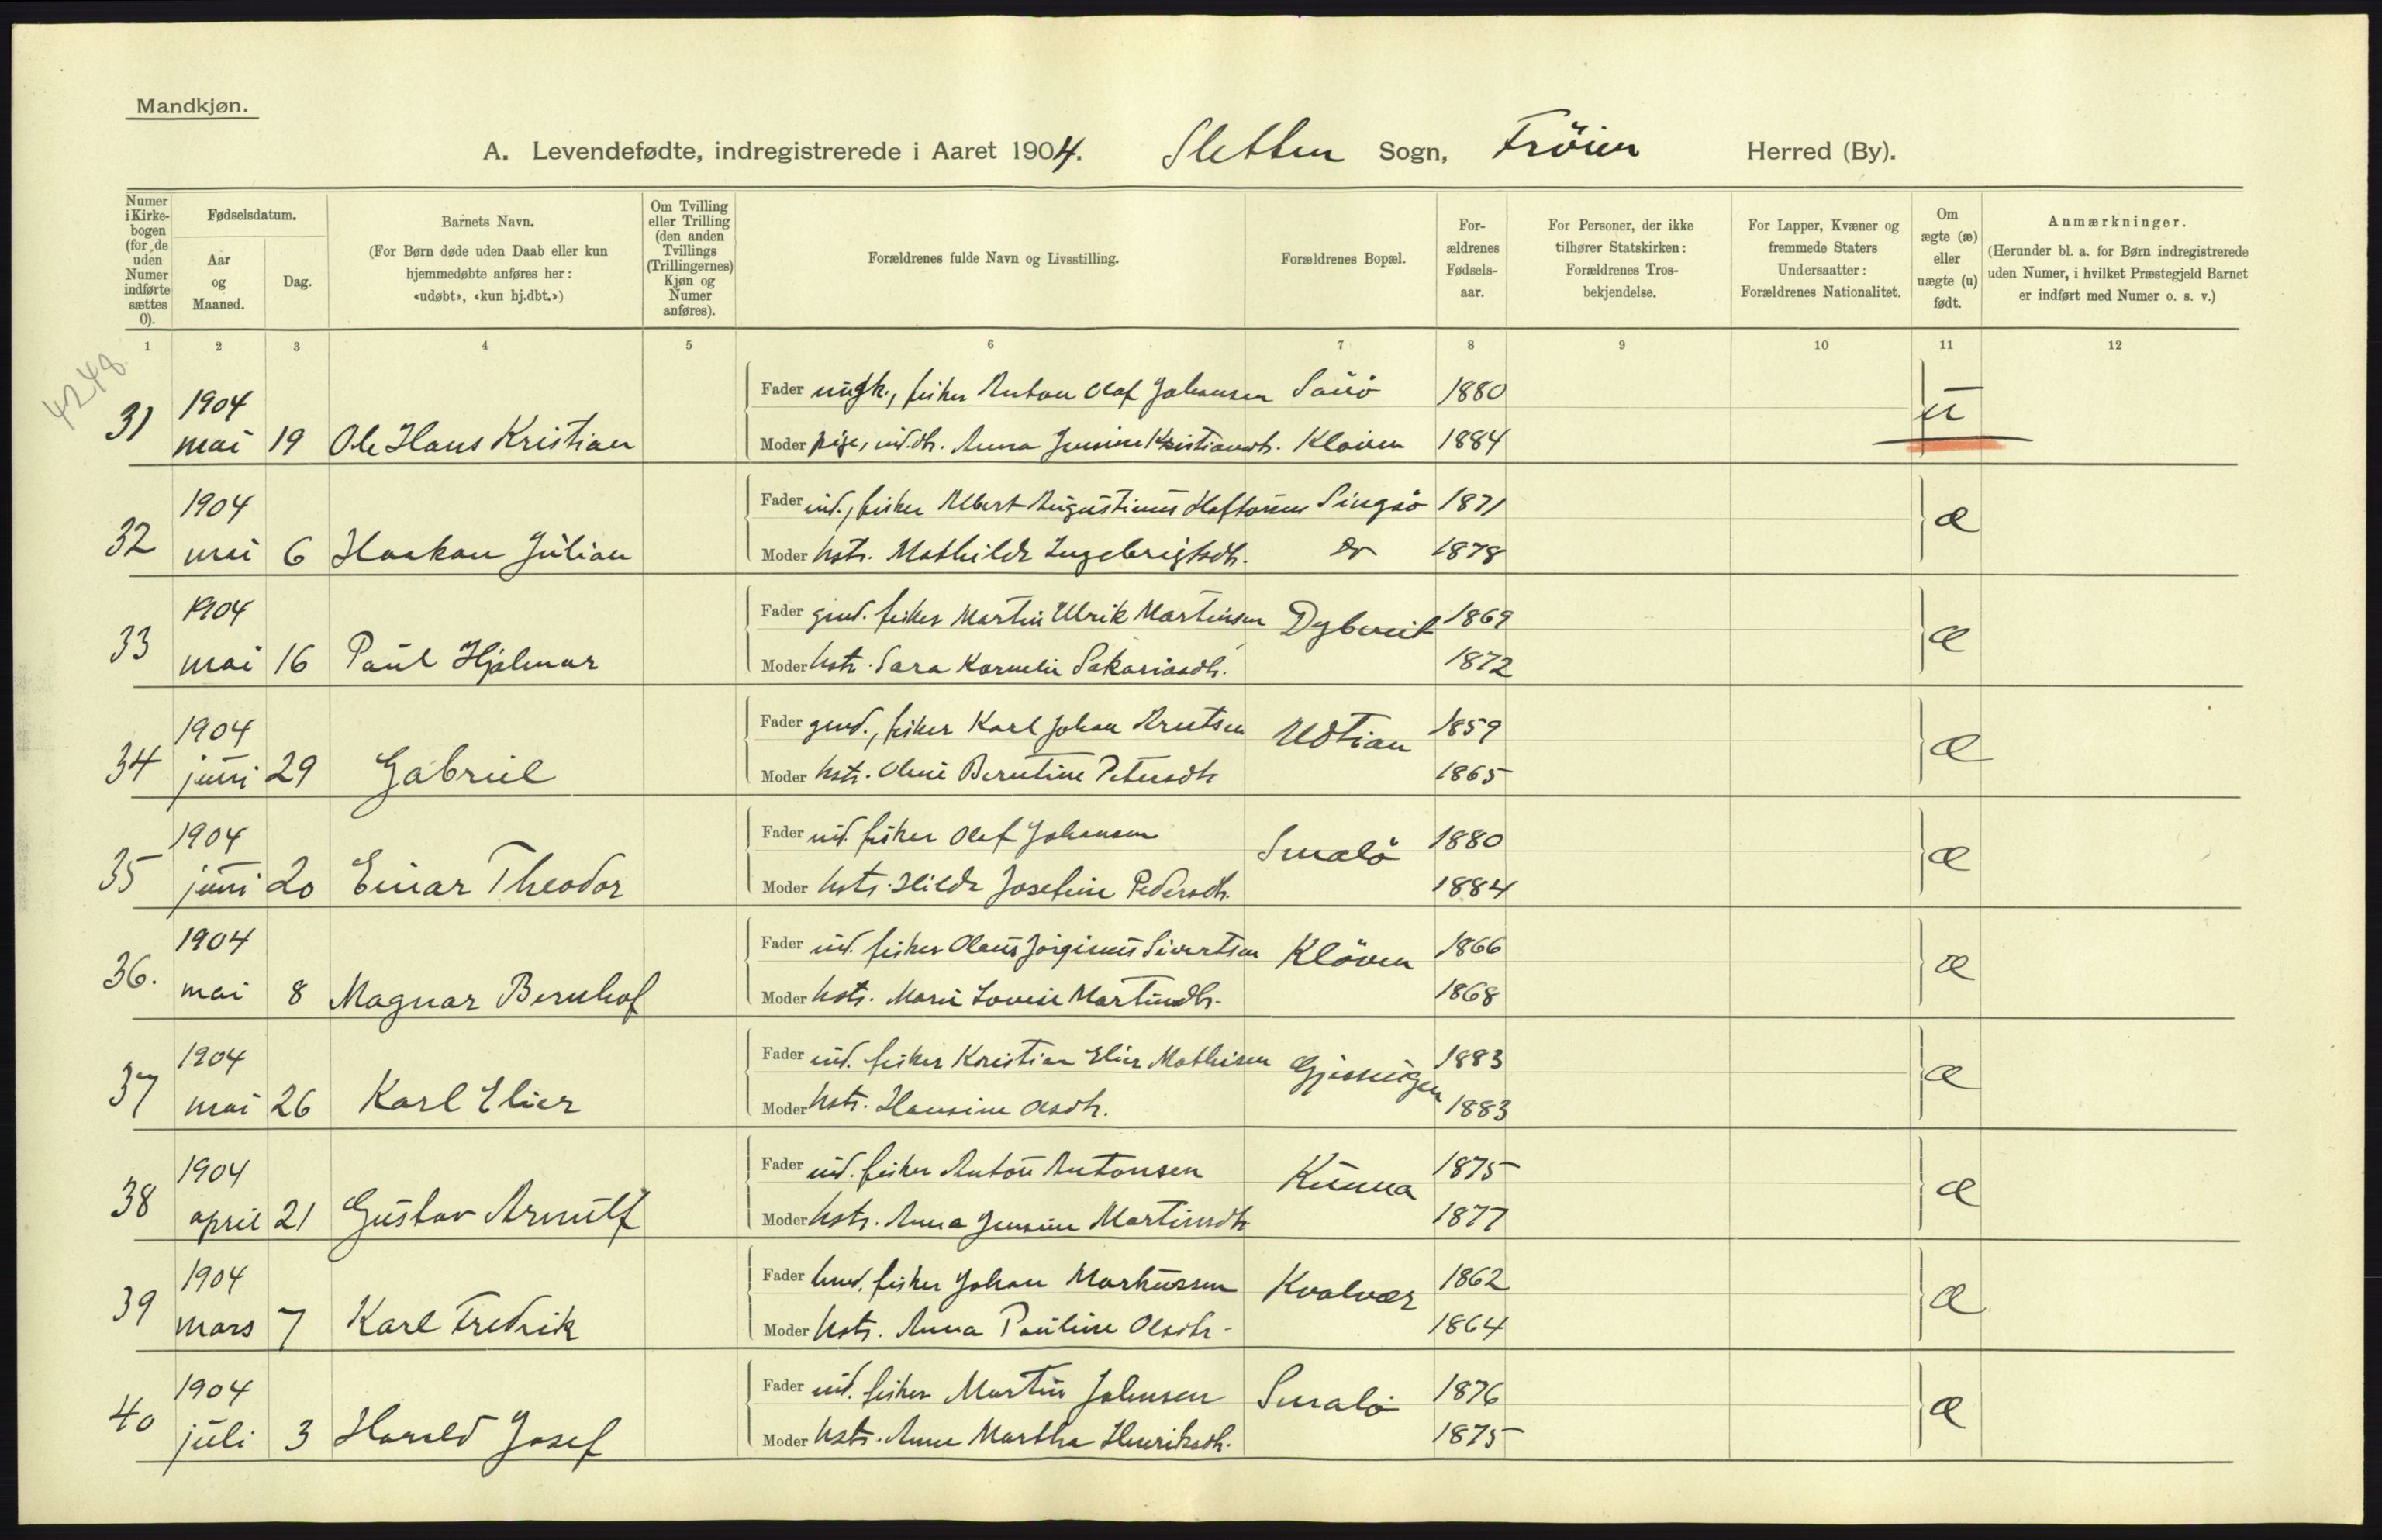 Mandkjøn.
A. Levendefødte, indregistrerede i Aaret 1904. Sletten Sogn, Fröien Herred (By).
Numer i Kirkebogen (for de uden Numer indførte sættes 0).
Fødselsdatum.
Aar og Maaned.
Dag.
Barnets Navn.
(For Børn døde uden Daab eller kun hjemmedøbte anføres her: «udøbt», «kun hj.dbt.»)
Om Tvilling eller Trilling (den anden Tvillings (Trillingernes) Kjøn og Numer anføres).
Forældrenes fulde Navn og Livsstilling.
Forældrenes Bopæl.
Forældrenes Fødselsaar.
For Personer, der ikke tilhører Statskirken: Forældrenes Trosbekjendelse.
For Lapper, Kvæner og fremmede Staters Undersaatter: Forældrenes Nationalitet.
Om ægte (æ) eller uægte (u) født.
Anmærkninger.
(Herunder bl. a. for Børn indregistrerede uden Numer, i hvilket Præstegjeld Barnet er indført med Numer o. s. v.)
1 2 3 4 5 6 7 8 9 10 11 12
4248
31 1904 mai 19 Ole Hans Kristian
Fader ungk., fisker Anton Olaf Johansen Sauö 1880 u
Moder pige, ind.dtr. Anna Jensine Kristiansdtr. 1884
32 1904 mai 6 Haakon Julian
Fader ind., fisker Albert Augustinus Haftorsen Singsö 1871 æ
Moder hstr. Mathilde Ingebrigtsdtr. do 1878
33 1904 mai 16 Paul Hjalmar
Fader gmd. fisker Martin Ulrik Martinsen Dybveik 1869 æ
Moder hstr. Sara Kornelie Sakariasdtr. 1872
34 1904 juni 29 Gabriel
Fader gmd., fisker Karl Johan Arntsen Udtian 1859 æ
Moder hstr. Oline Berntine Petersdtr 1865
35 1904 juni 20 Einar Theodor
Fader ind. fisker Olaf Johansen Smalö 1880 æ
Moder hstr. Hilda Josefine Pedersdtr. 1884
36. 1904 mai 8 Magnar Bernhof
Fader ind. fisker Olaus Jörginus Sivertsen Klöven 1866 æ
Moder hstr. Marie Lovise Martinsdtr. 1868
37 1904 mai 26 Karl Elier
Fader ind. fisker Kristian Elier Mathisen Gjæsingen 1883 æ
Moder hstr. Hansine Olsdtr. 1883
38 1904 april 21 Gustav Arnulf
Fader ind. fisker Anton Antonsen Kunna 1875 æ
Moder hstr. Anna Jensine Martinsdtr 1877
39 1904 mars 7 Karl Fredrik
Fader fisker Johan Markussen Kvalvær 1862 æ
Moder hstr. Anna Pauline Olsdtr. 1864
40 1904 juli 3 Harald Josef
Fader ind. fisker Martin Johnsen Smalö 1876 æ
Moder hstr. Anne Martha Henriksdtr. 1875